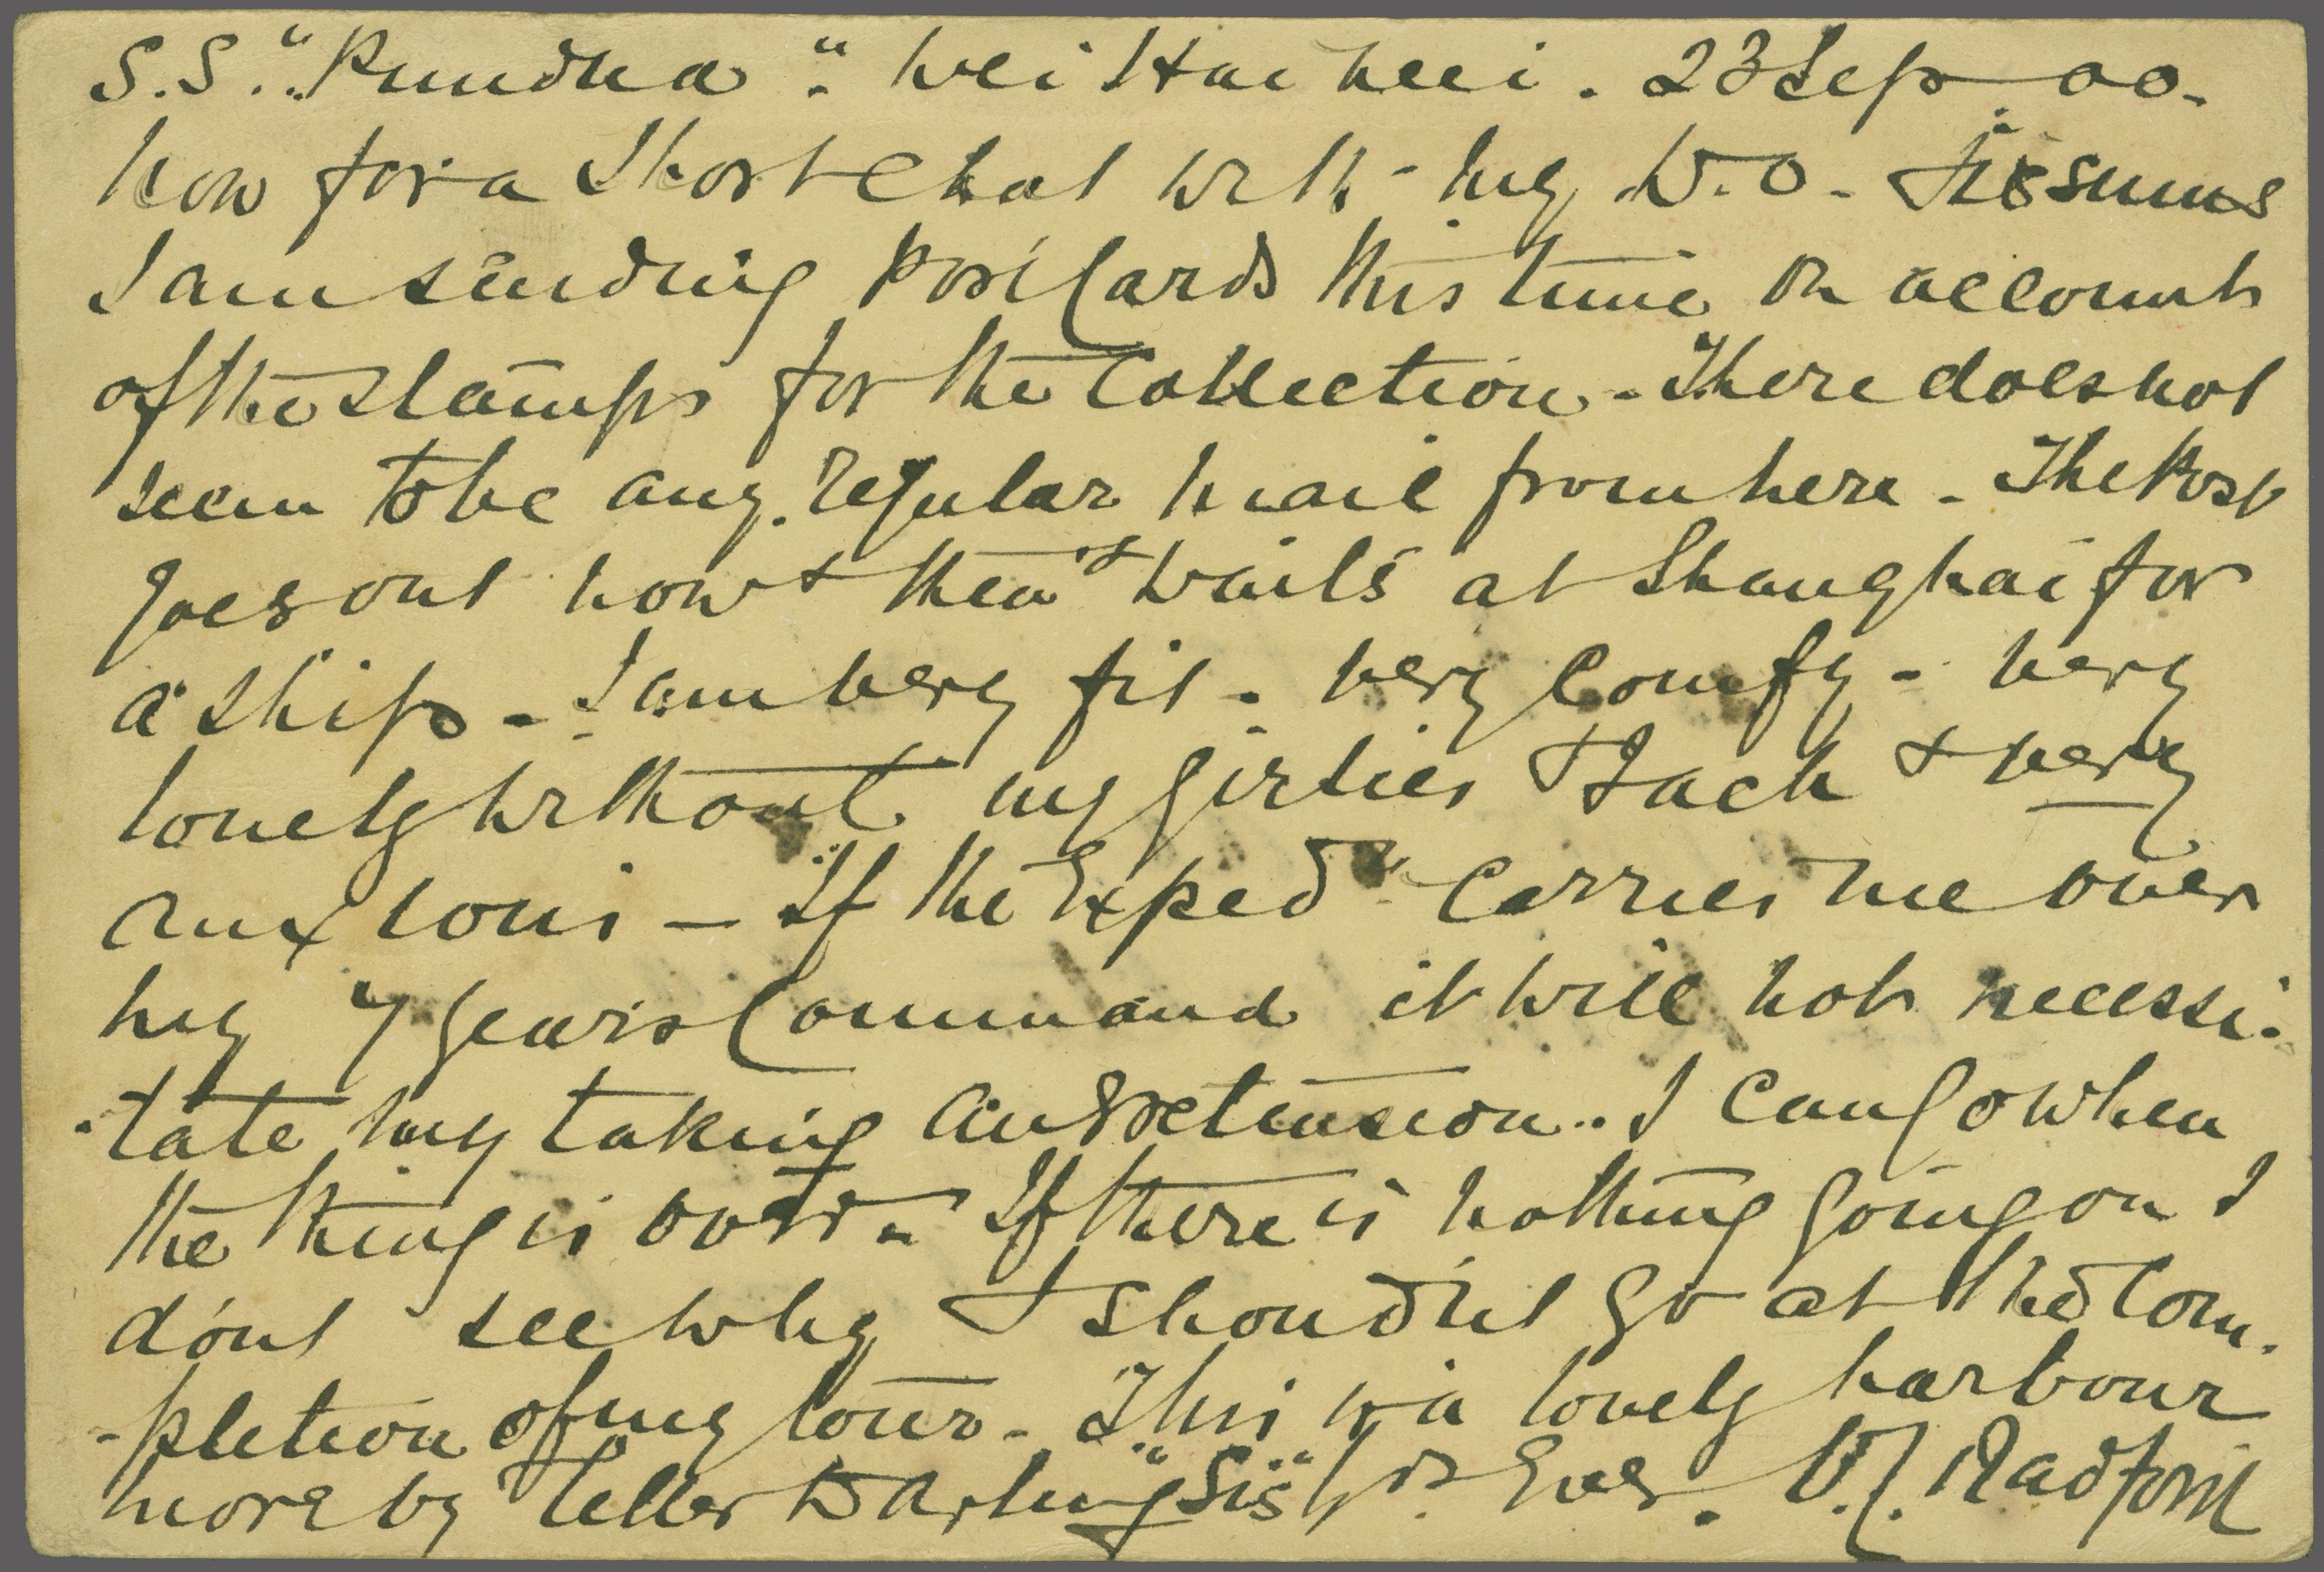 S.S. "Pundua". Wei Hai Wei. 23 Sep. 00.
Now for a short chat with my D.O.
I am sending Post Cards this time on account
of the stamps for the Collection - There does not
seem to be any regular mail from here - The Post
goes out now & then & waits at Shanghai for
a ship - I am very fit - very Comfy - very
lonely without my girlies & Jack & very
anxious - If the Expedn carries me over
my 7 years Command it will not necessi-
-tate my taking an Extension.. I can go when
the thing is over - If there is nothing going on I
don't see why I shouldn't go at the Com-
-pletion of my tour - This is a lovely harbour
more by letter Darling "Sis" Yrs Ever. Radford